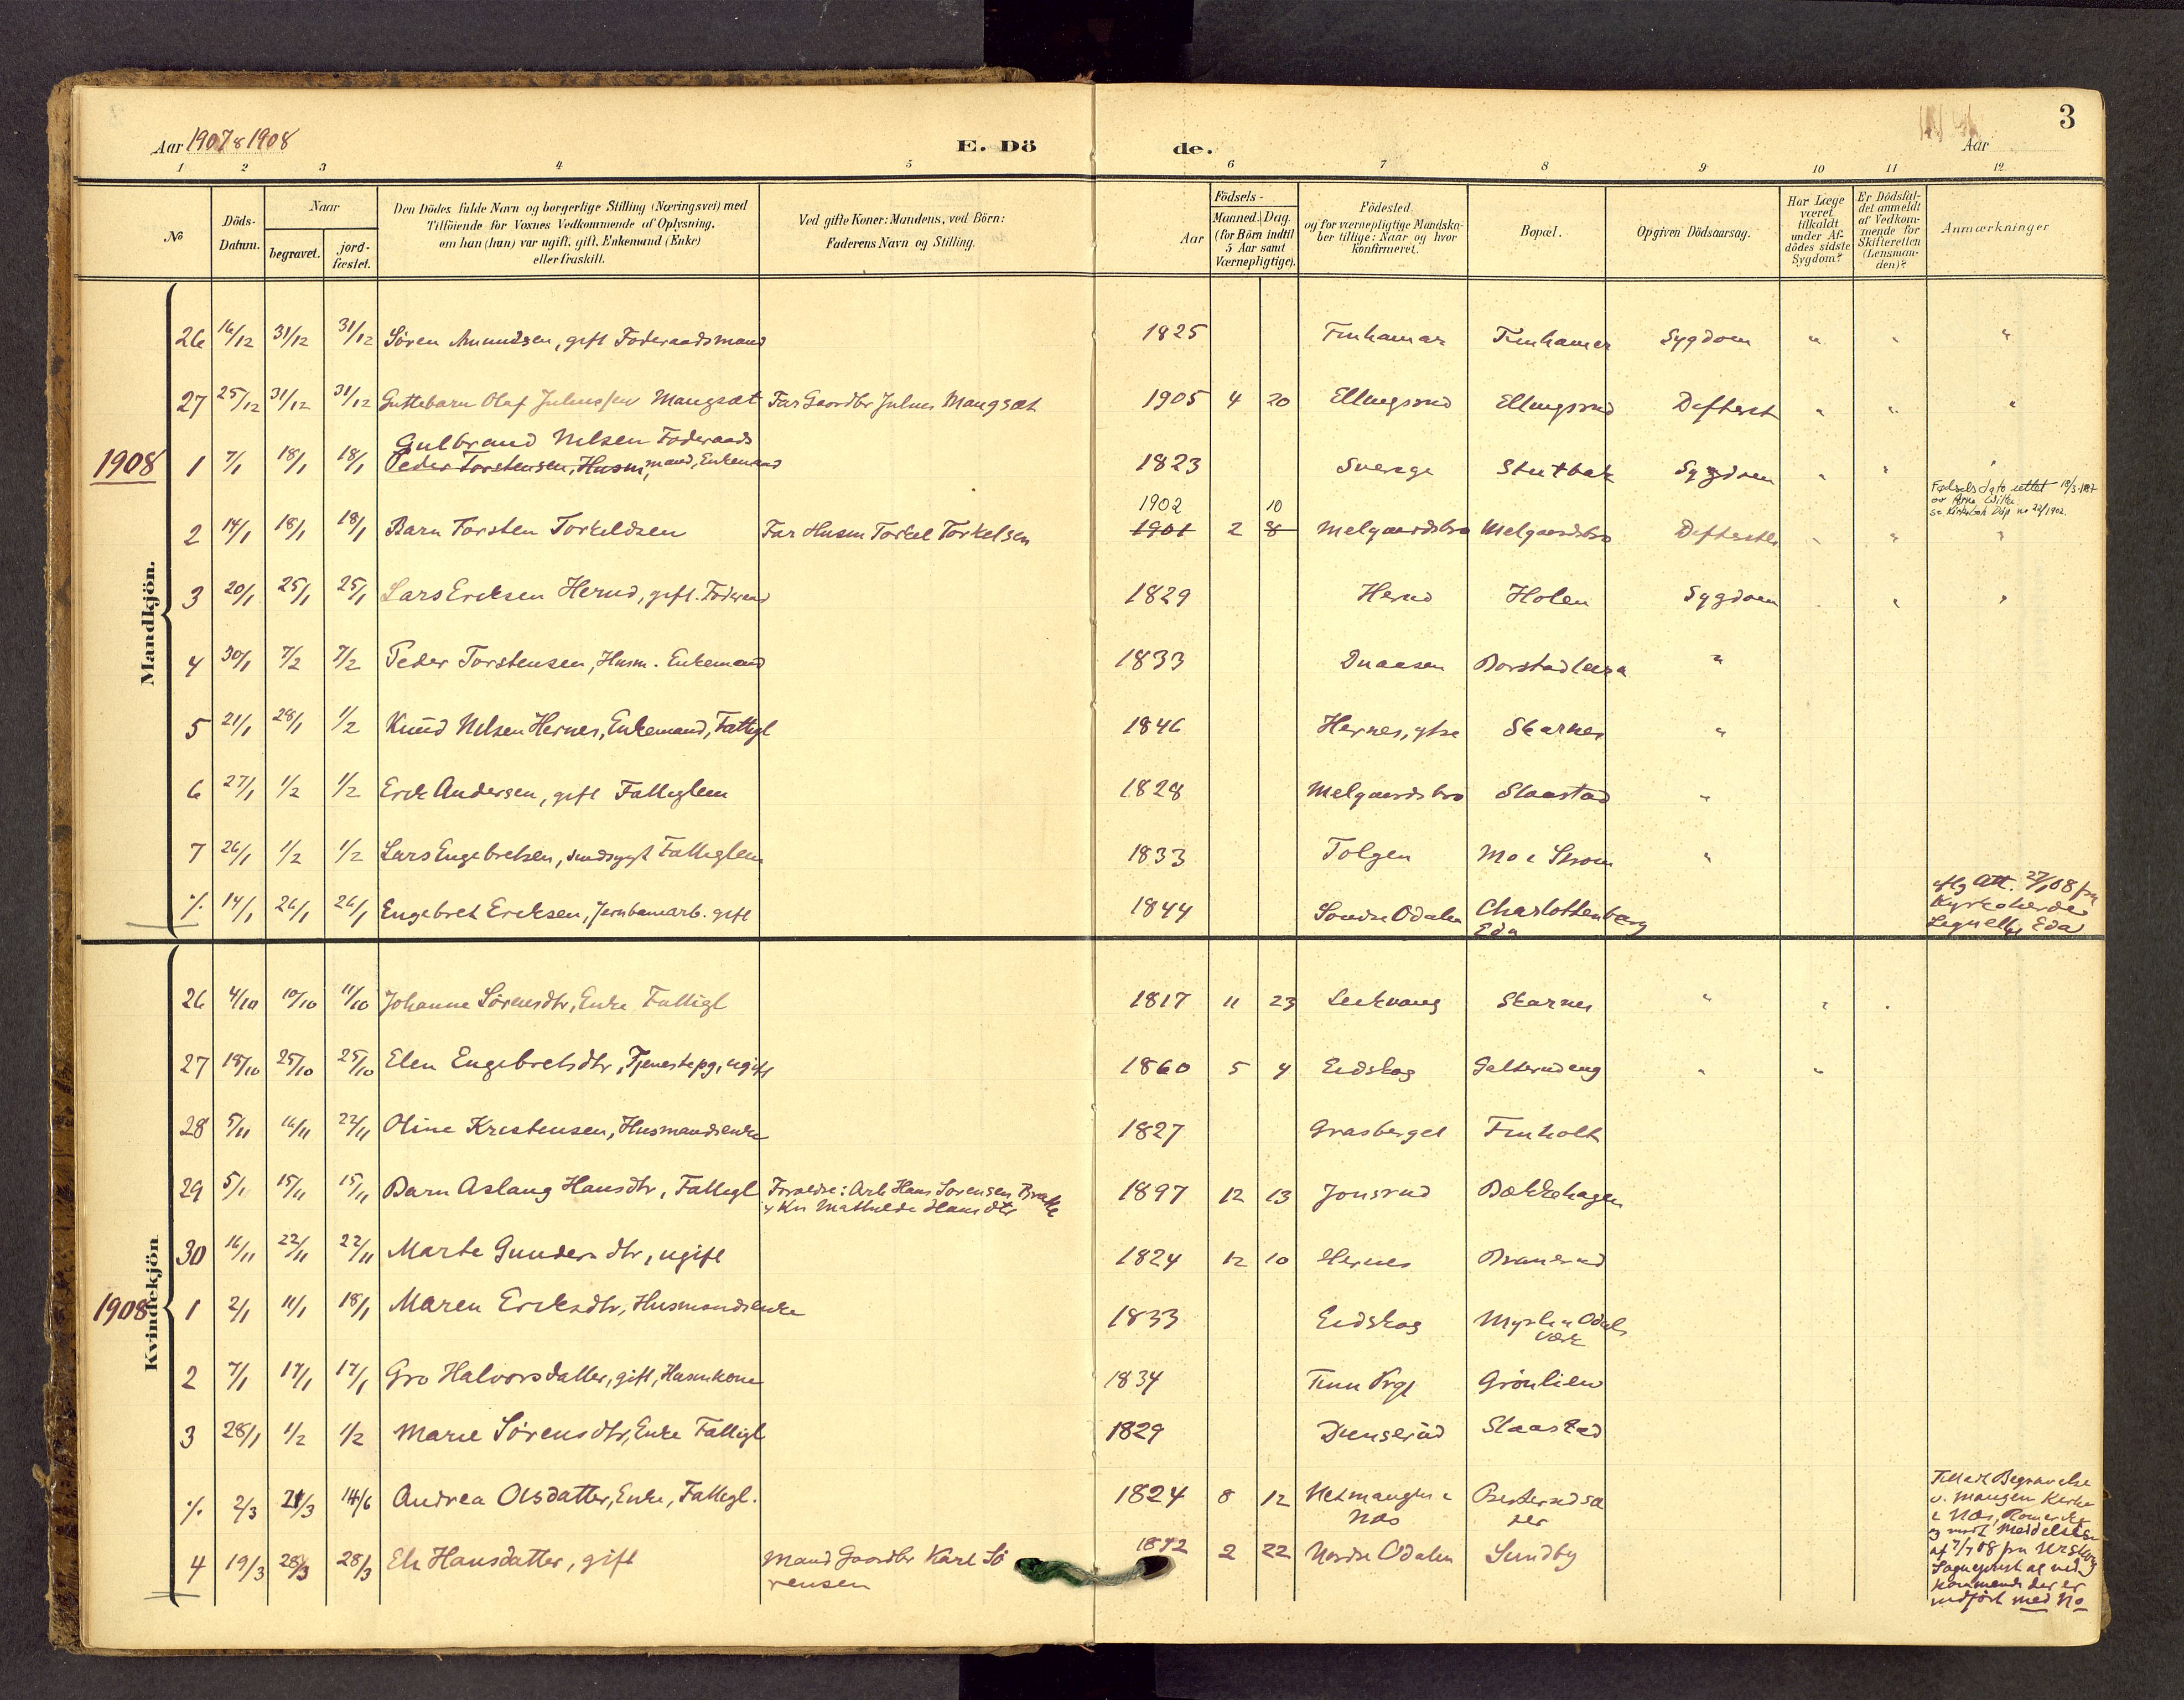 3
Aar 1907 & 1908
E. Dö de.
Aar
1 2 3 4 5 6 7 8 9 10 11 12
No
Döds-Datum.
Naar
begravet.
jord-fæstet.
Den Dödes fulde Navn og borgerlige Stilling (Næringsvei) med
Tilföiende for Voxnes Vedkommende af Oplysning,
om han (hun) var ugift, gift, Enkemand (Enke)
eller fraskilt.
Ved gifte Koner: Mandens, ved Börn:
Faderens Navn og Stilling.
Aar
Födsels-
Maaned. Dag.
(for Börn indtil
5 Aar samt
Værnepligtige).
Födested
og for værnepligtige Mandska-
ber tillige: Naar og hvor
konfirmeret.
Bopæl.
Opgiven Dödsaarsag.
Har Læge
været
tilkaldt
under Af-
dödes sidste
Sygdom?
Er Dödsfal-
det anmeldt
af Vedkom-
mende for
Skifteretten
(Lensman-
den)?
Anmærkninger
Mandkjön.
26 16/12 31/12 31/12 Sören Amundsen, gift Foderaadsmand 1825 Finhamar Finhamar Sygdom " " "
27 25/12 31/12 31/12 Guttebarn Olaf Juliussen Mangset Far Gaardbr Julius Mangset 1905 4 20 Ellingsrud Ellingsrud Difterit " " "
Gulbrand Nilsen Foderaads
1908 1 7/1 18/1 18/1 Peder Torstensen, Husm, mand, Enkemand 1823 Sverige Stutbak Sygdom " " "
Fødselsdato rettet
1902 10
2 14/1 18/1 18/1 Barn Torsten Torkeldsen Far Husm Torkel Torkelsen 1901 2 8 Melgaardsbro Melgaardsbro " " "
3 20/1 25/1 25/1 Lars Ericksen Herud, gift. Foderaad 1829 Herud Holen Sygdom " "
4 30/1 7/2 7/2 Peder Torstensen, Husm. Enkemand 1833 "
5 21/1 28/1 1/2 Knud Nilsen Hernes, Enkemand, Fattigl 1846 Hernes, Skarnes "
6 27/1 1/2 1/2 Erik Andersen, gift Fattiglem 1828 Melgaardsbro Slaastad "
7 26/1 1/2 1/2 Lars Engebretsen, sindsygt Fattiglem 1833 Tolgen Mo i Strøm "
% 14/1 26/1 26/1 Engebret Ericksen, Jernbanearb. gift 1844 Søndre Odalen Charlottenberg
Eda
Kyrkoherde
Eda
Kvindekjön
26 4/10 10/10 11/10 Johanne Sørensdtr, Enke Fattigl 1817 11 23 Skarnes "
27 19/10 25/10 25/10 Elen Engebretsdtr, Tjenestepg, ugift 1860 5 4 Eidskog Galterudeng " "
28 5/11 16/11 22/11 Oline Kristensen, Husmandsenke 1827 Grasberget Finholt
29 5/1 15/11 15/11 Barn Aslaug Hansdtr, Fattigl Foreldre: Arb Hans Sorensen
Mathilde Hansdtr 1897 12 13 Jonsrud Bækkehagen
30 16/11 22/11 22/11 Marte Gundersdtr, ugift 1824 12 10 Hernes
1908 1 2/1 11/1 18/1 Maren Ericksdtr, Husmandsenke 1833 Eidskog
2 7/1 17/1 17/1 Gro Halvorsdatter, gift, Husmkone 1834 Grönlien
3 28/1 1/2 1/2 Marie Sørensdtr, Enke Fattigl 1829 Slaastad
% 2/3 21/3 14/6 Andrea Olsdatter, Enke, Fattigl. 1824 8 12
Næs
4 19/3 28/3 28/3 Eli Hansdatter, gift Mand Gaardbr Karl Sö
rensen 1872 2 22 Nordre Odalen Sundby
Begravelse
v. Mangen Kirke
i Næs, Romerike
indført med No